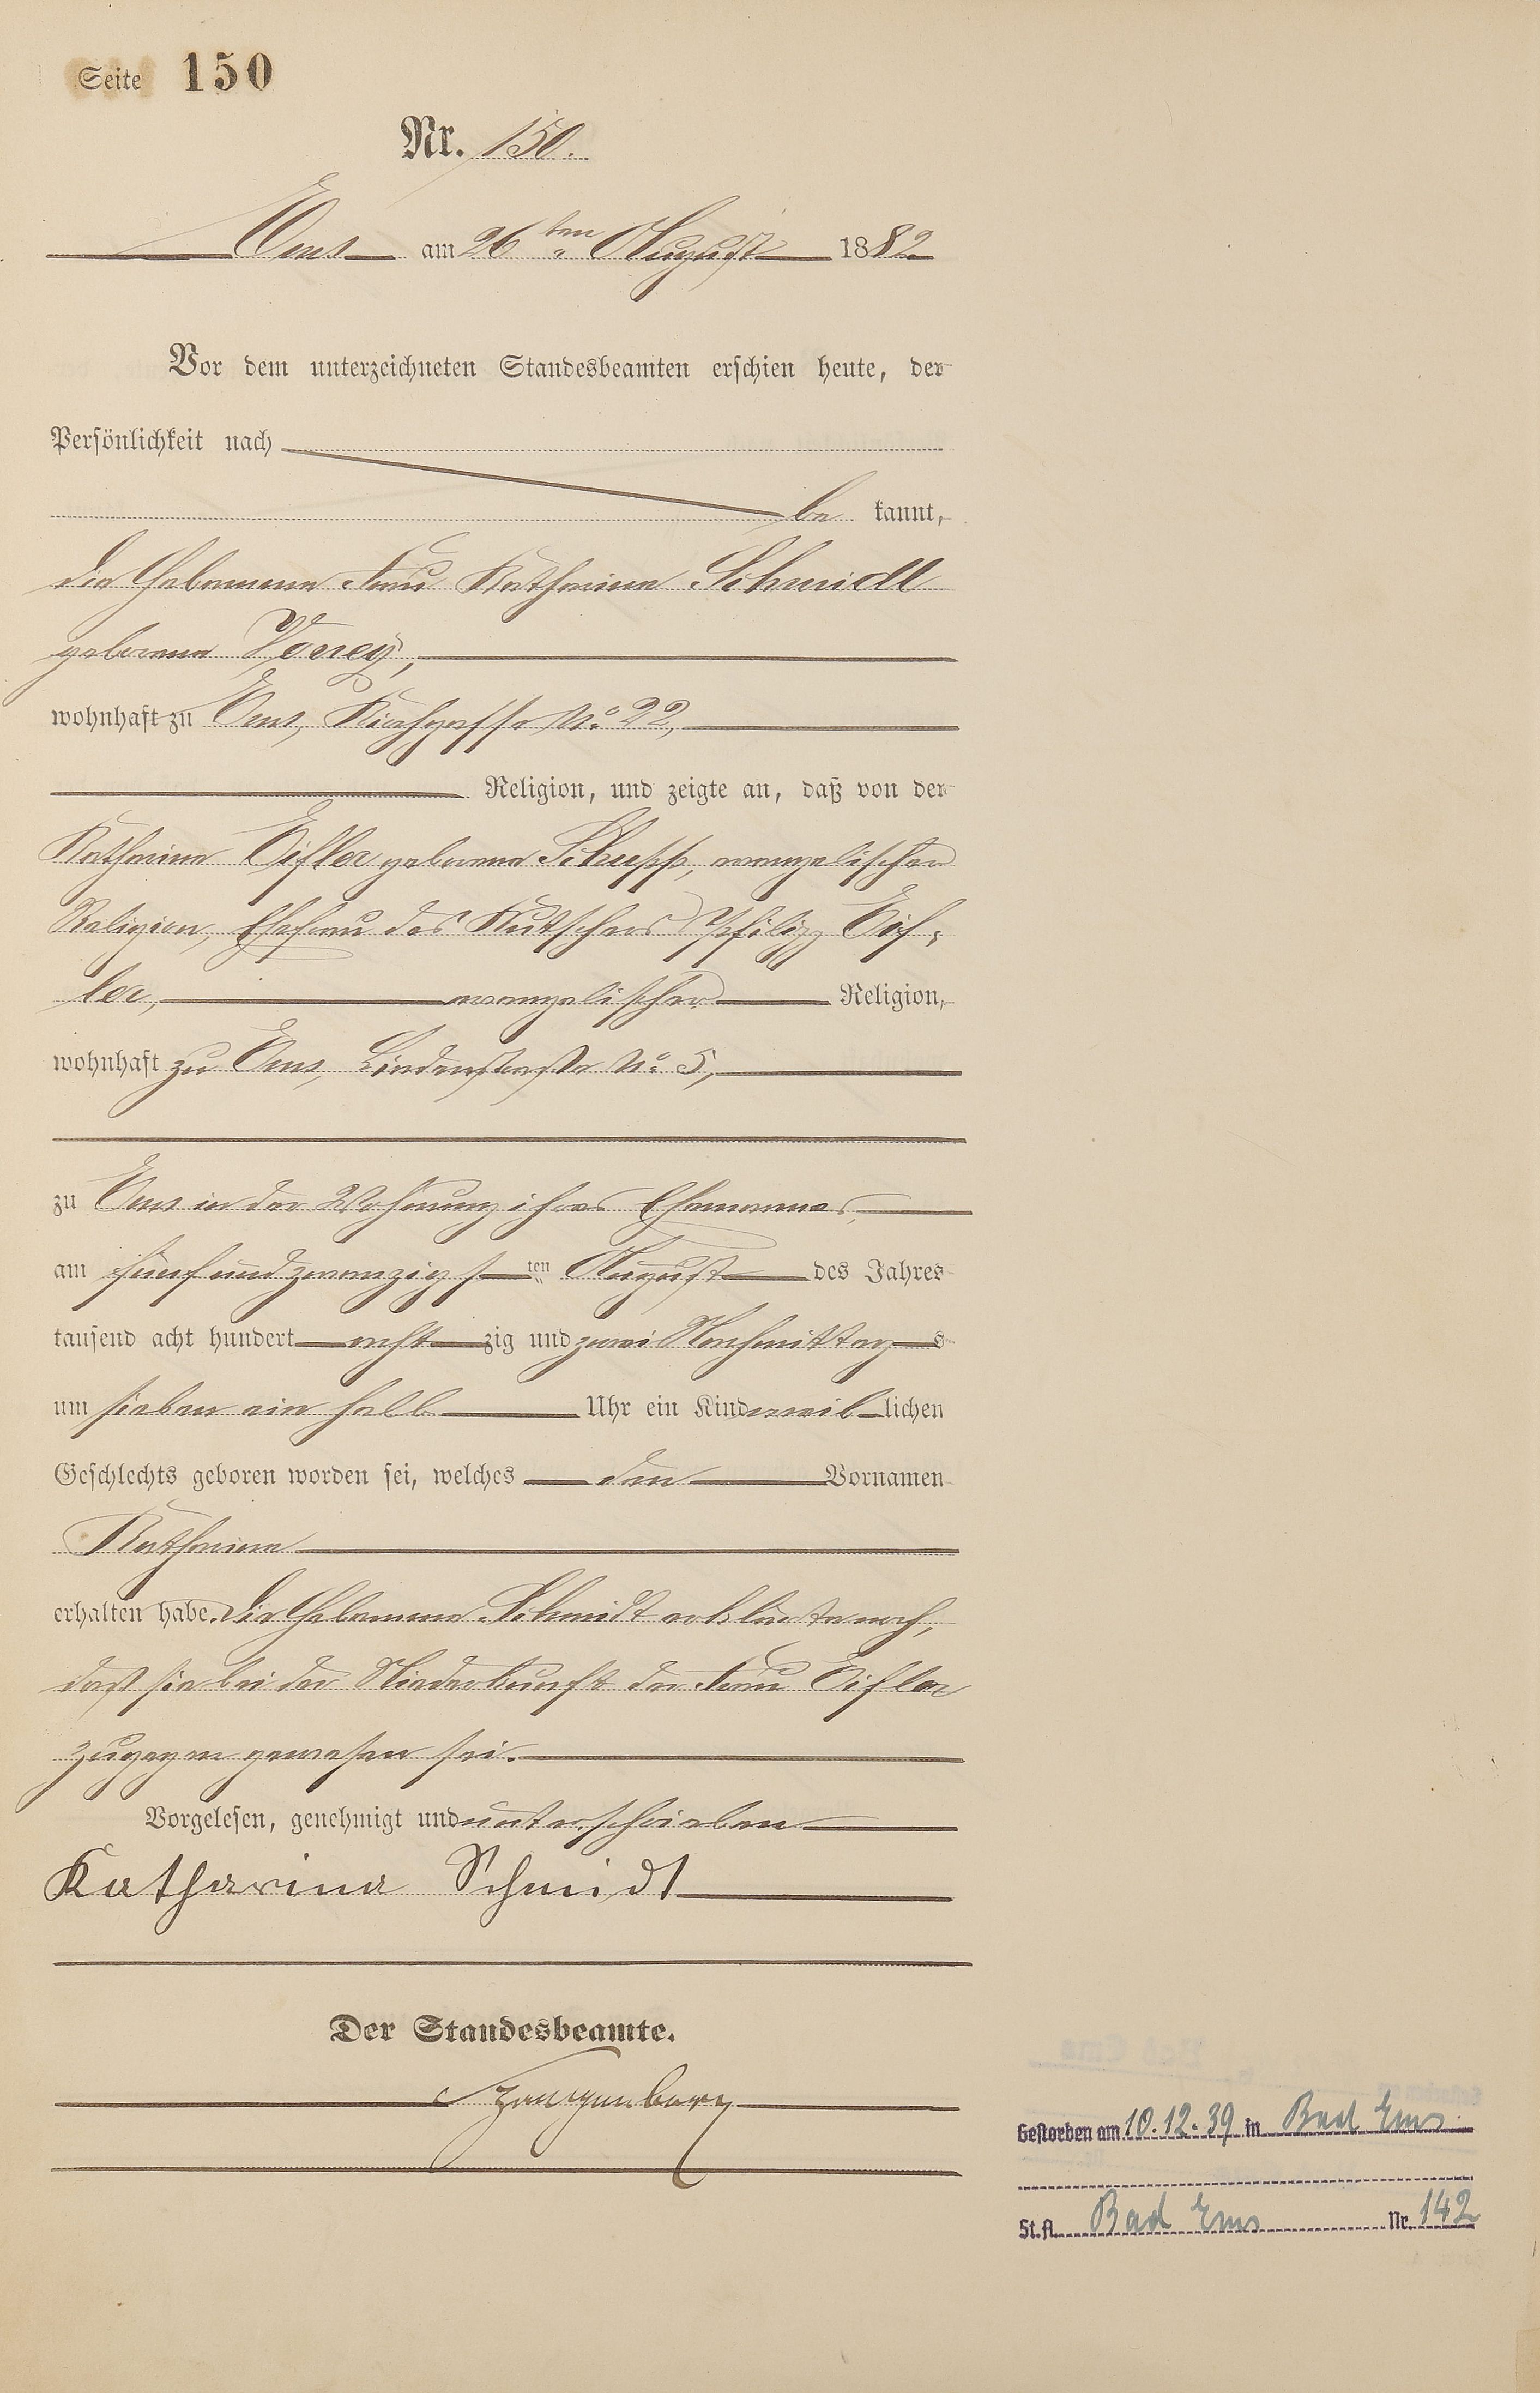 Seite 150
Nr. 150.
Ems am 26ten August 1882
Vor dem unterzeichneten Standesbeamten erschien heute, der
Persönlichkeit nach
be kannt,
die Hebamme Frau Katharina Schmidt
geborene
wohnhaft zu Ems, Kirchgasse No. 22,
Religion, und zeigte an, daß von der
Katharina Eisler geborene Schupp, evangelischer
Religion, Ehefrau des Kutschers Philipp Eis-
ler, evangelischer Religion,
wohnhaft zu Ems, Lindenstraße No. 5,
zu Ems in der Wohnung ihres Ehemannes,
am fünf und zwanzigsten August des Jahres
tausend acht hundert acht zig und zwei Nachmittags
um sieben ein halb Uhr ein Kind weiblichen
Geschlechts geboren worden sei, welches den Vornamen
Katharina
erhalten habe. Die Hebamme Schmidt erklärte noch,
daß sie bei der Niederkunft der Frau Eisler
zugegen gewesen sei.
Vorgelesen, genehmigt und unterschrieben
Katharina Schmidt
Der Standesbeamte.
Spangenberg
Gestorben am 10.12.39 in Bad Ems
St.A. Bad Ems Nr. 142